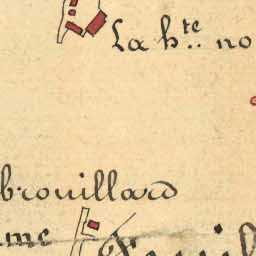 La hte. no
brouillard
ame